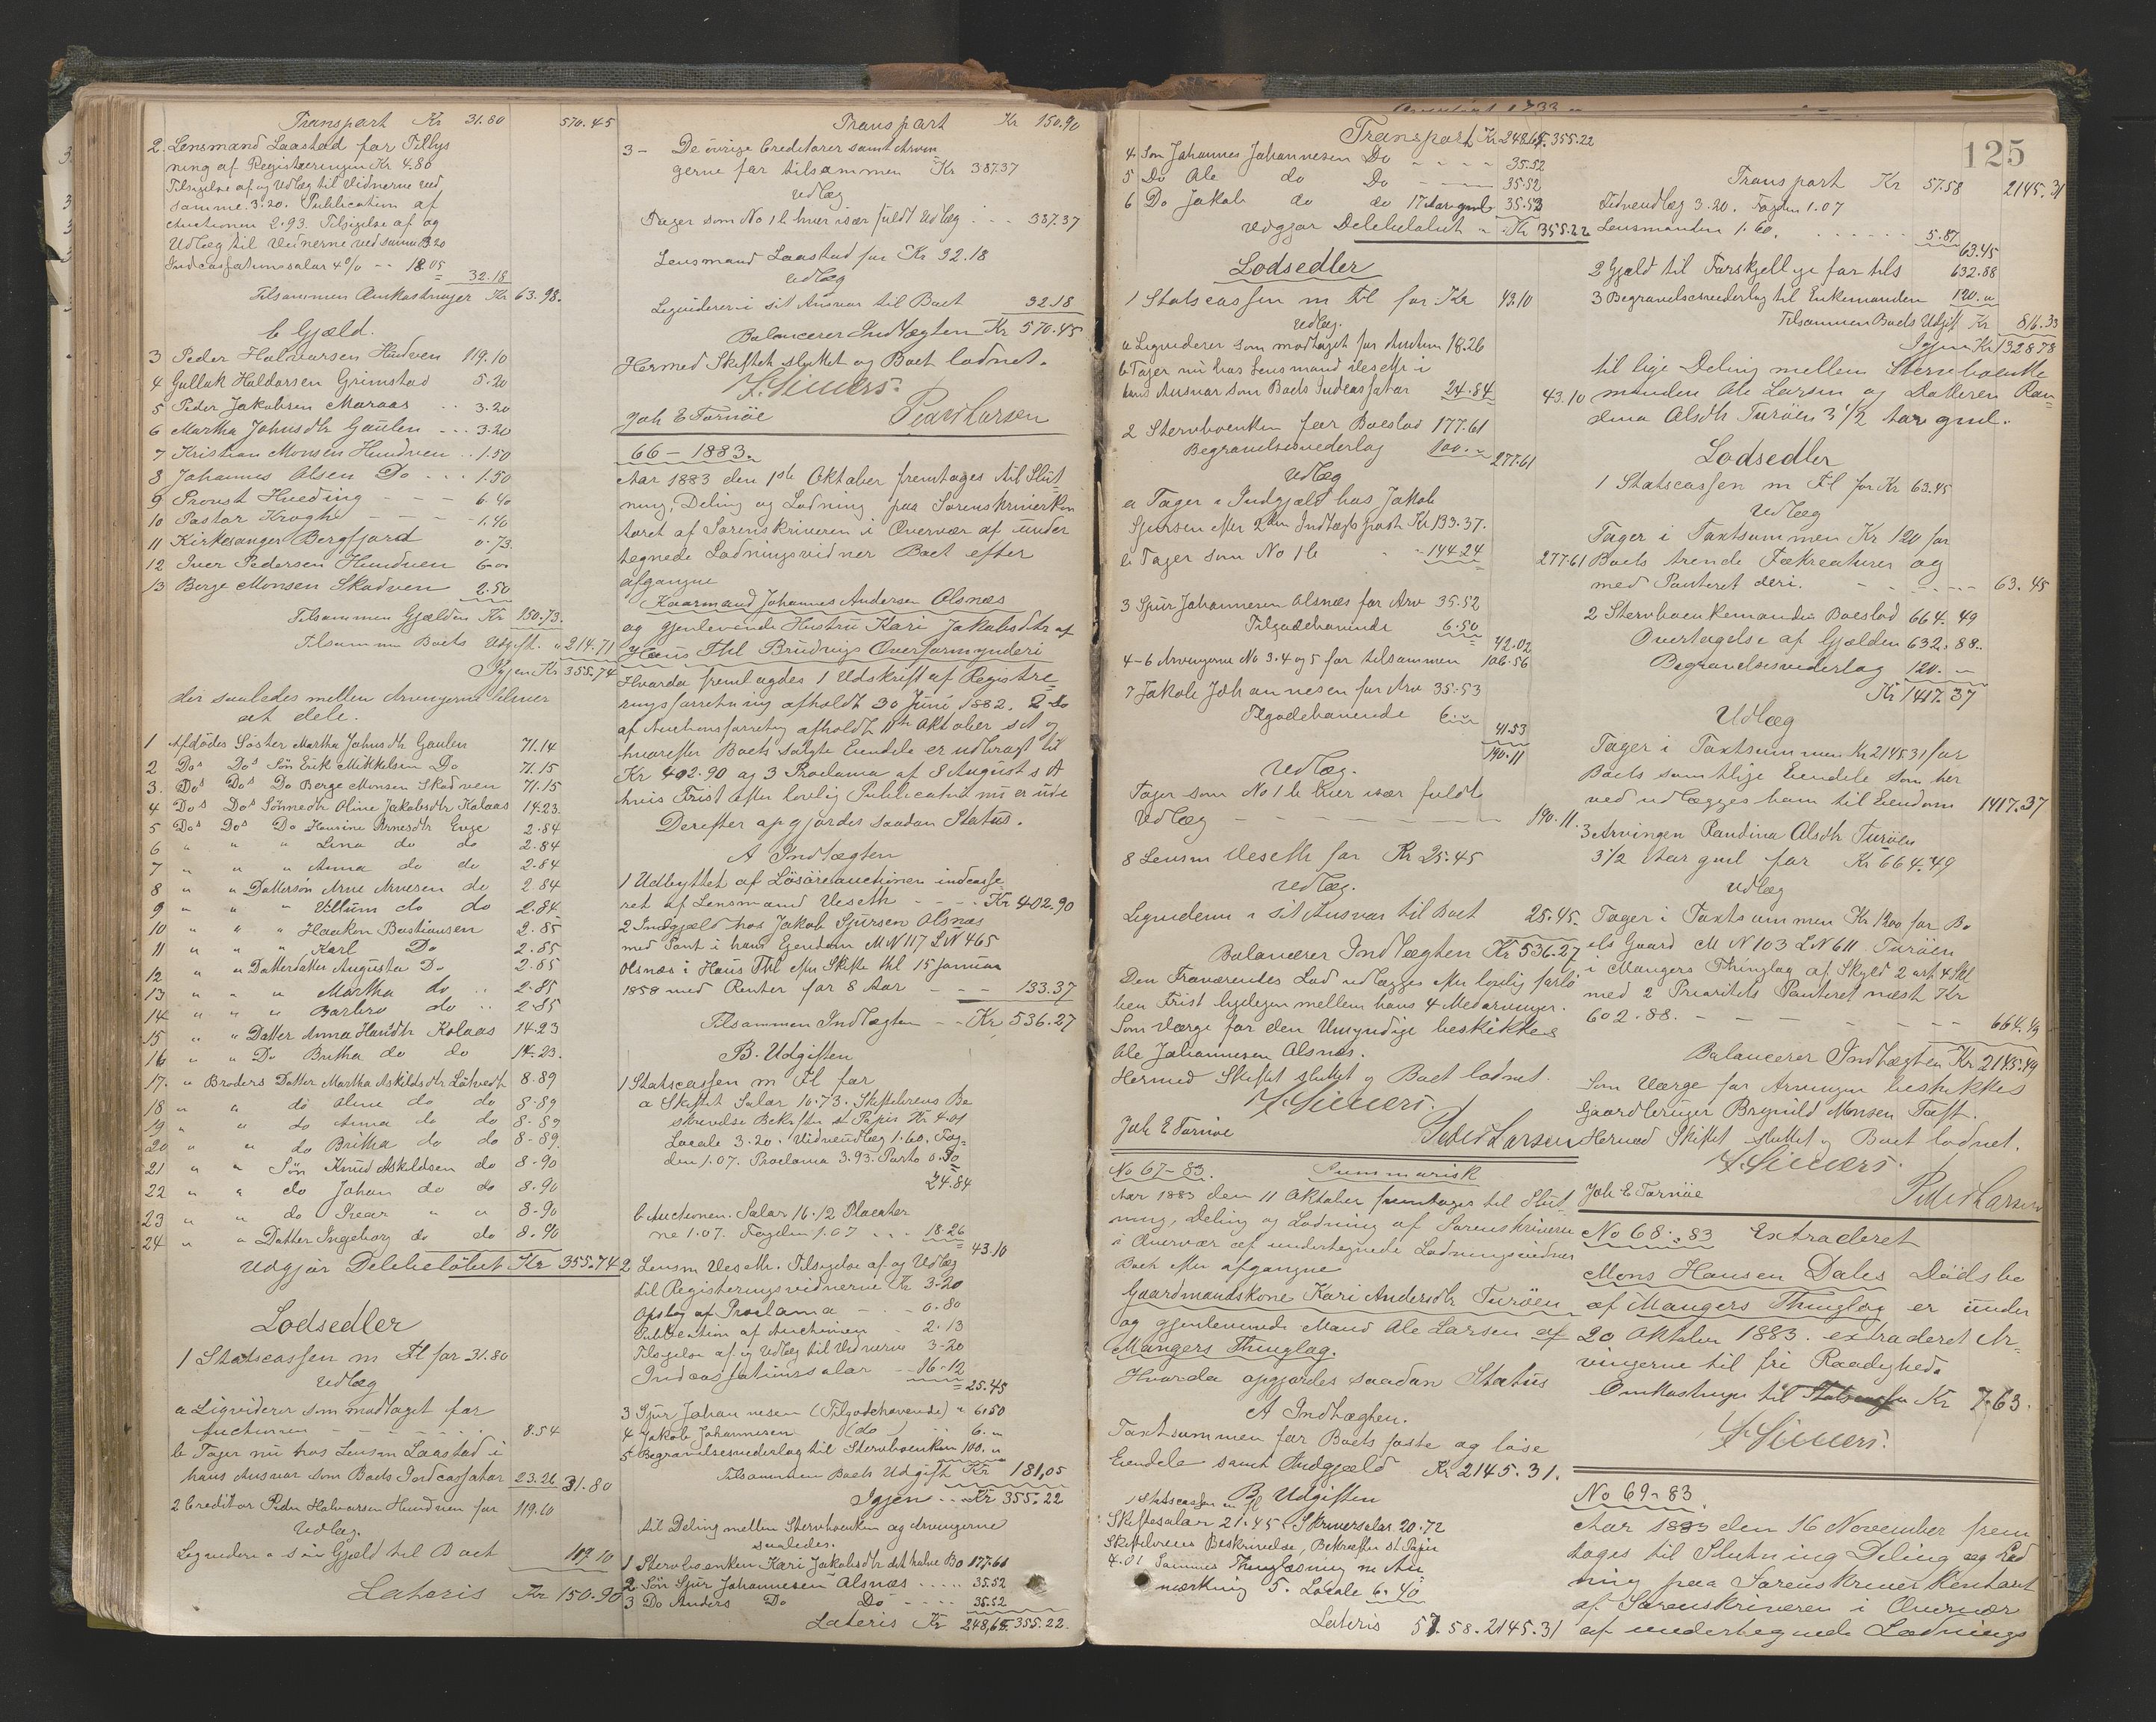 Transport Kr 31.80 570.45
2. Lensmand Laastad for Tillys
ning af Registreringen Kr 4.86
Tilsigelse af og Udlæg til Vidnerne ved
samme 3.20. Publication af
Auctionen 2.93. Tilsigelse af og
Udlæg til Vidnerne ved samme 3.20
Indcassationssalær 4% -- 18.05 32.18
Tilsammen Omkostninger Kr 63.98.
C Gjæld.
3 Peder Halvorsen Hundven 119.10
4 Gulluk Haldorsen Grimstad 5.20
5 Peder Jakobsen Maraas .. 3.20
6 Martha Johnsdtr Gaulen ... 3.20
7 Kristian Monsen Hundven .. 1.50
8 Johannes Olsen Do ... 1.50
9 Provst Hveding - - - 6.40
10 Pastor Krogh - - - 1.40
11 Kirkesanger Bergfjord 0.73.
12 Iver Pedersen Hundven 6.00
13 Berge Monsen Skodven 2.50
Tilsammen Gjælden Kr 150.73.
Tilsammen Boets Udgift. " 214.71
Igjen Kr 355.74
der saaledes mellem Arvingerne bliver
at dele.
1 Afdødes Søster Martha Johnsdtr Gaulen 71.14
2 Dos Dos Søn Erik Mikkelsen Do 71.15
3. Dos Dos Do Berge Monsen Skodven 71.15
4 Dos Dos Sønnedtr Oline Jakobsdtr Kolaas 14.23.
5 Dos Dos Do Hansine Arnesdtr Enge 2.84
6 " " " Lina do do 2.84
7 " " " Anna do do 2.84
8 " " Dattersøn Arne Arnesen do 2.84
9 " " " Villum do do 2.84.
10 " " " Haakon Bastiansen 2.85
11 " " " Karl Do 2.85
12 " " Datterdatter Augusta Do 2.85
13 " " " Martha do .. 2.85
14 " " " Barbro do .. 2.85
15 " " Datter Anna Hansdtr Kolaas 14.23
16 " " Do Britha do do 14.23.
17. " Broders Datter Martha Askildsdtr Låtvedt 8.89
18 " " do Oline do do 8.89
19 " " do Anna do do 8.89
20 " " do Britha do do 8.89.
21 " " Søn Knud Askildsen do 8.90
22 " " do Johan do do 8.90
23 " " do Peder " " 8.90
24 " " Datter Ingeborg do do 8.90
Udgjør Delebeløbet Kr 355.74
Lodsedler
1 Statscassen m Fl for 31.80
Udlæg
a Ligviderer som modtaget for
Auctionen - - - - 8.54
b Tager nu hos Lensm Laastad i
hans Ansvar som Boets Indcassator 23.26 31.80
2 Creditor Peder Halvorsen Hundven for 119.10
Udlæg.
Ligviderer i sin Gjæld til Boet 119.10
Lateris Kr 150.90
Transport Kr 150.90
3 - De øvrige Creditorer samt Arvin
gerne for tilsammen Kr 387.37
Udlæg
Tager som No 1 b hver især fuldt Udlæg ... 387.37
Lensmand Laastad for Kr 32.18
Udlæg
Ligviderer i sit Ansvar til Boet 32.18
Balancerer Indtægten Kr 570.45
Hermed Skiftet sluttet og Boet lodnet.
F. Sievers.
Joh E Tornøe Peder Larsen
66 - 1883.
Aar 1883 den 1ste Oktober fremtages til Slut
ning, Deling og Lodning paa Sorenskriverkon
toret af Sorenskriveren i Overvær af under
tegnede Lodningsvidner Boet efter
afgangne
Kaarmand Johannes Andersen Olsnæs
og gjenlevende Hustru Kari Jakobsdtr af
Haus Thl Bruvigs Overformynderi
Hvorda fremlagdes 1 Udskrift af Registre
ringsforretning afholdt 30 Juni 1882. 2 Do
af Auctionsforretng afholdt 11te Oktober s A og
hvorefter Boets solgte Eiendele er udbragt til
Kr 402.90 og 3 Proclama af 8 August s A
hvis Frist efter lovlig Publication nu er ude
Derefter opgjordes saadan Status.
A Indtægten
1 Udbyttet af Løsøreauctionen indcasse
ret af Lensmand Veseth - - - Kr 402.90
2 Indgjæld hos Jakob Sjursen Olsnæs
med Pant i hans Eiendom M N 117 L N 465
Olsnæs i Haus Thl efter Skifte thl 15 Januar
1858 med Renter for 8 Aar - - - 133.37
Tilsammen Indtægten - - Kr 536.27
B. Udgiften
1 Statscassen m Fl for
a Skiftet Salær 10.73. Skiftebrevs Be
skrivelse Bekræftn st Papir Kr 4.01
Locale 3.20. Vidneudlæg 1.60, Fog-
den 1.07. Proclama 3.93. Porto 0.30
24.84
b Auctionen. Salær 16.12 Placater
ne 1.07. Fogden 1.07 ... 18.26
43.10
2 Lensm Veseth. Tilsigelse af og Udlæg
til Registeringsvidnerne Kr 3.20
Opslag af Proclama - . - 0.80
Publication af Auctionen - 2.13
Tilsigelse af og Udlæg til Vidnerne 3.20
Indcassationssalær - 16.12
25.45
3 Sjur Johannesen (Tilgodehavende) " 6.50
4 Jakob Johannesen (do) . 6. "
5 Begravelsesvederlag til Stervboenken 100. "
Tilsammen Boets Udgift Kr 181,05
Igjen .. Kr 355.22
til Deling mellem Stervboenken og Arvingerne
saaledes.
1 Stervboenken Kari Jakobsdtr det halve Bo 177.61
2 Søn Sjur Johannesen Olsnæs ..... 35.52
3 Do Anders Do Do - - - - 35.52
Lateris Kr 248,65. 355.22.
125
Transport Kr 248.65. 355.22
4. Søn Johannes Johannesen Do - - - - 35.52
5 Do Ole do Do - - - 35.52
6 Do Jakob do do 17 Aar gml 35.53
Udgjør Delebeløbet " " Kr 355.22
Lodsedler
1 Statscassen m Fl for Kr 43.10
Udlæg.
a Ligviderer som modtaget for Auctionen 18.26
b Tager nu hos Lensmand Veseth i
hans Ansvar som Boets Indcassator 24.84 43.10
2 Stervboenken for Boeslod 177.61
Begravelsesvederlag 100. " 277.61
Udlæg
a Tager i Indgjæld hos Jakob
Sjursen efter 2den Indtægtspost Kr 133.37.
b Tager som No 1 b - - 144.24 277.61
3 Sjur Johannesen Olsnæs for Arv 35.52
Tilgodehavende 6.50
42.02
4-6 Arvingerne No 3.4 og 5 for tilsammen 106.56
7 Jakob Johannesen for Arv 35.53
Tilgodehavende 6. "
41.53
190.11
Udlæg.
Tager som No 1 b hver især fuldt
Udlæg - - - - - 190.11.
8 Lensm Veseth for Kr 25.45
Udlæg.
Ligviderer i sit Ansvar til Boet 25.45.
Balancerer Indtægten Kr 536.27
Den Fraværendes Lod udlægges efter lovlig forlø
ben Frist ligelegen mellem hans 4 Medarvinger.
Som Værge for den Umyndige beskikkes
Ole Johannesen Olsnæs.
Hermed Skiftet sluttet og Boet lodnet.
F. Sievers.
Joh E Tornøe Peder Larsen
No 67-83. Summarisk
Aar 1883 den 11 Oktober fremtages til Slut
ning, Deling og Lodning af Sorenskriveren
i Overvær af undertegnede Lodningsvidner
Boet efter afgangne
Gaardmandskone Kari Andersdtr Turøen
og gjenlevende Mand Ole Larsen af
Mangers Thinglag.
Hvorda opgjordes saadan Status
A Indtægten.
Taxtsummen for Boets faste og løse
Eiendele samt Indgjæld Kr 2145.31.
B Udgiften
1 Statscassen m Fl
Skiftesalær 21.45. Skriversalær 20.72
Skiftebrevs Beskrivelse, Bekræftn st Papir
4.01 Sammes Thinglæsning m An
mærkning 5. Locale 6.40
Lateris 57.58. 2145.31
Transport Kr 57.58 2145.31
Vidneudlæg 3.20. Fogden 1.07
Lensmanden 1.60. . . . . . . 5.87
63.45
2 Gjæld til Forskjellige for tils 632.88
3 Begravelsesvederlag til Enkemanden 120. "
Tilsammen Boets Udgift Kr 816.33
Igjen Kr 1328.98
til lige Deling mellem Stervboenke
manden Ole Larsen og Datteren Ran
dina Olsdtr Turøen 3 1/2 Aar gml.
Lodsedler
1 Statscassen m Fl for Kr 63.45
Udlæg
Tager i Taxtsummen Kr 120 for
Boets trende Fækreaturer og
med Panteret deri. - - - - 63.45
2 Stervboenkemanden Boeslod 664.49
Overtagelse af Gjælden 632.88..
Begravelsesvederlag 120. -
Kr 1417.37
Udlæg
Tager i Taxtsummen Kr 2145.31 for
Boets samtlige Eiendele som her
ved udlægges ham til Eiendom 1417.37
3 Arvingen Randina Olsdtr Turøen
3 1/2 Aar gml for Kr 664.49
Udlæg
Tager i Taxtsummen Kr 1200 for Bo
ets Gaard M N 103 L N 611 Turøen
i Mangers Thinglag af Skyld 2 ort 4 Skl
med 2 Prioritets Panteret næst Kr
602.88. - - - - - 664.49
Balancerer Indtægten Kr 2145.49
Som Værge for Arvingen beskikkes
Gaardbruger Brynild Monsen Toft.
Hermed Skiftet sluttet og Boet lodnet.
F. Sievers.
Joh E Tornøe Peder Larsen
No 68.-83 Extraderet
Mons Hansen Dales Dødsbo
af Mangers Thinglag er under
20 Oktober 1883. extraderet Ar-
vingerne til fri Raadighed.
Omkostninger til Statscassen Kr 7.63.
F. Sievers.
No 69-83.
Aar 1883 den 16 November frem
tages til Slutning Deling og Lod
ning paa Sorenskriverkontoret
af Sorenskriveren i Overvær
af undertegnede Lodnings